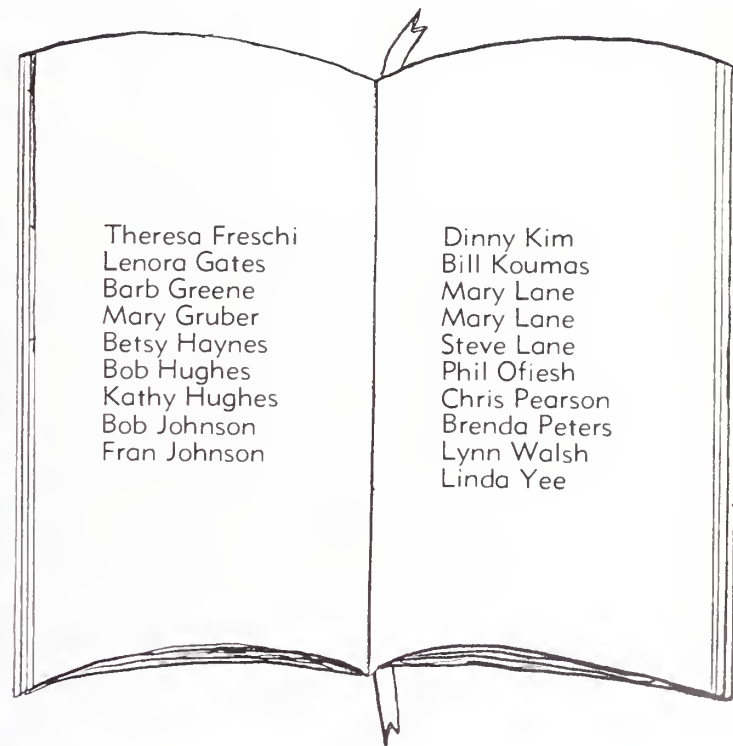 Theresa Freschi
Lenora Gates
Barb Greene
Mary Gruber
Betsy Haynes
Bob Hughes
Kathy Hughes
Bob Johnson
Fran Johnson
Dinny Kim
Bill Koumas
Mary Lane
Mary Lane
Steve Lane
Phil Ofiesh
Chris Pearson
Brenda Peters
Lynn Walsh
Linda Yee